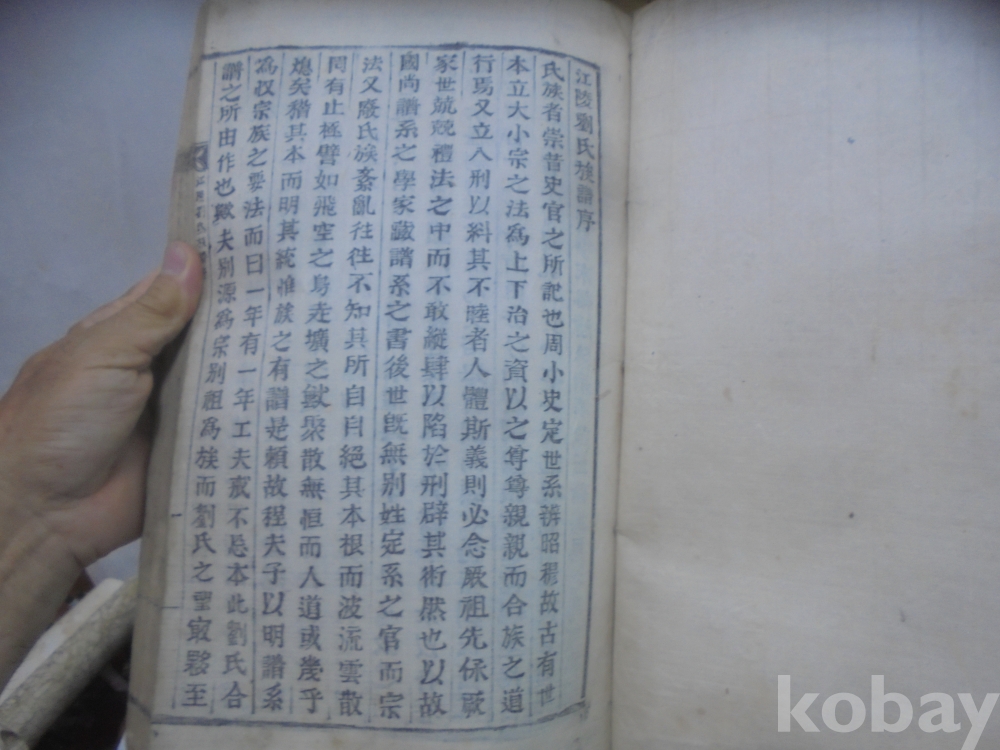 江陵劉氏族譜序
氏族者崇昔史官之所記也周小史定世系辨昭穆故古有世
本立大小宗之法爲上下治之資以之尊尊親親而合族之道
行焉又立八刑以糾其不睦者人體斯義則必念厥祖先保
家世兢兢禮法之中而不敢縱肆以陷於刑辟其術然也以故
國尚譜系之學家藏譜系之書後世旣無別姓定系之官而宗
法又廢氏族紊亂往往不知其所自自絕其本根而波流雲散
罔有止極譬如飛空之鳥走壙之獸聚散無恒而人道或幾乎
熄矣稽其本而明其統惟族之有譜是賴故程夫子以明譜系
爲收宗族之要法而曰一年有一年工夫戒不忘本此劉氏合
譜之所由作也歟夫別源爲宗別祖爲族而劉氏之望最夥至
kobay